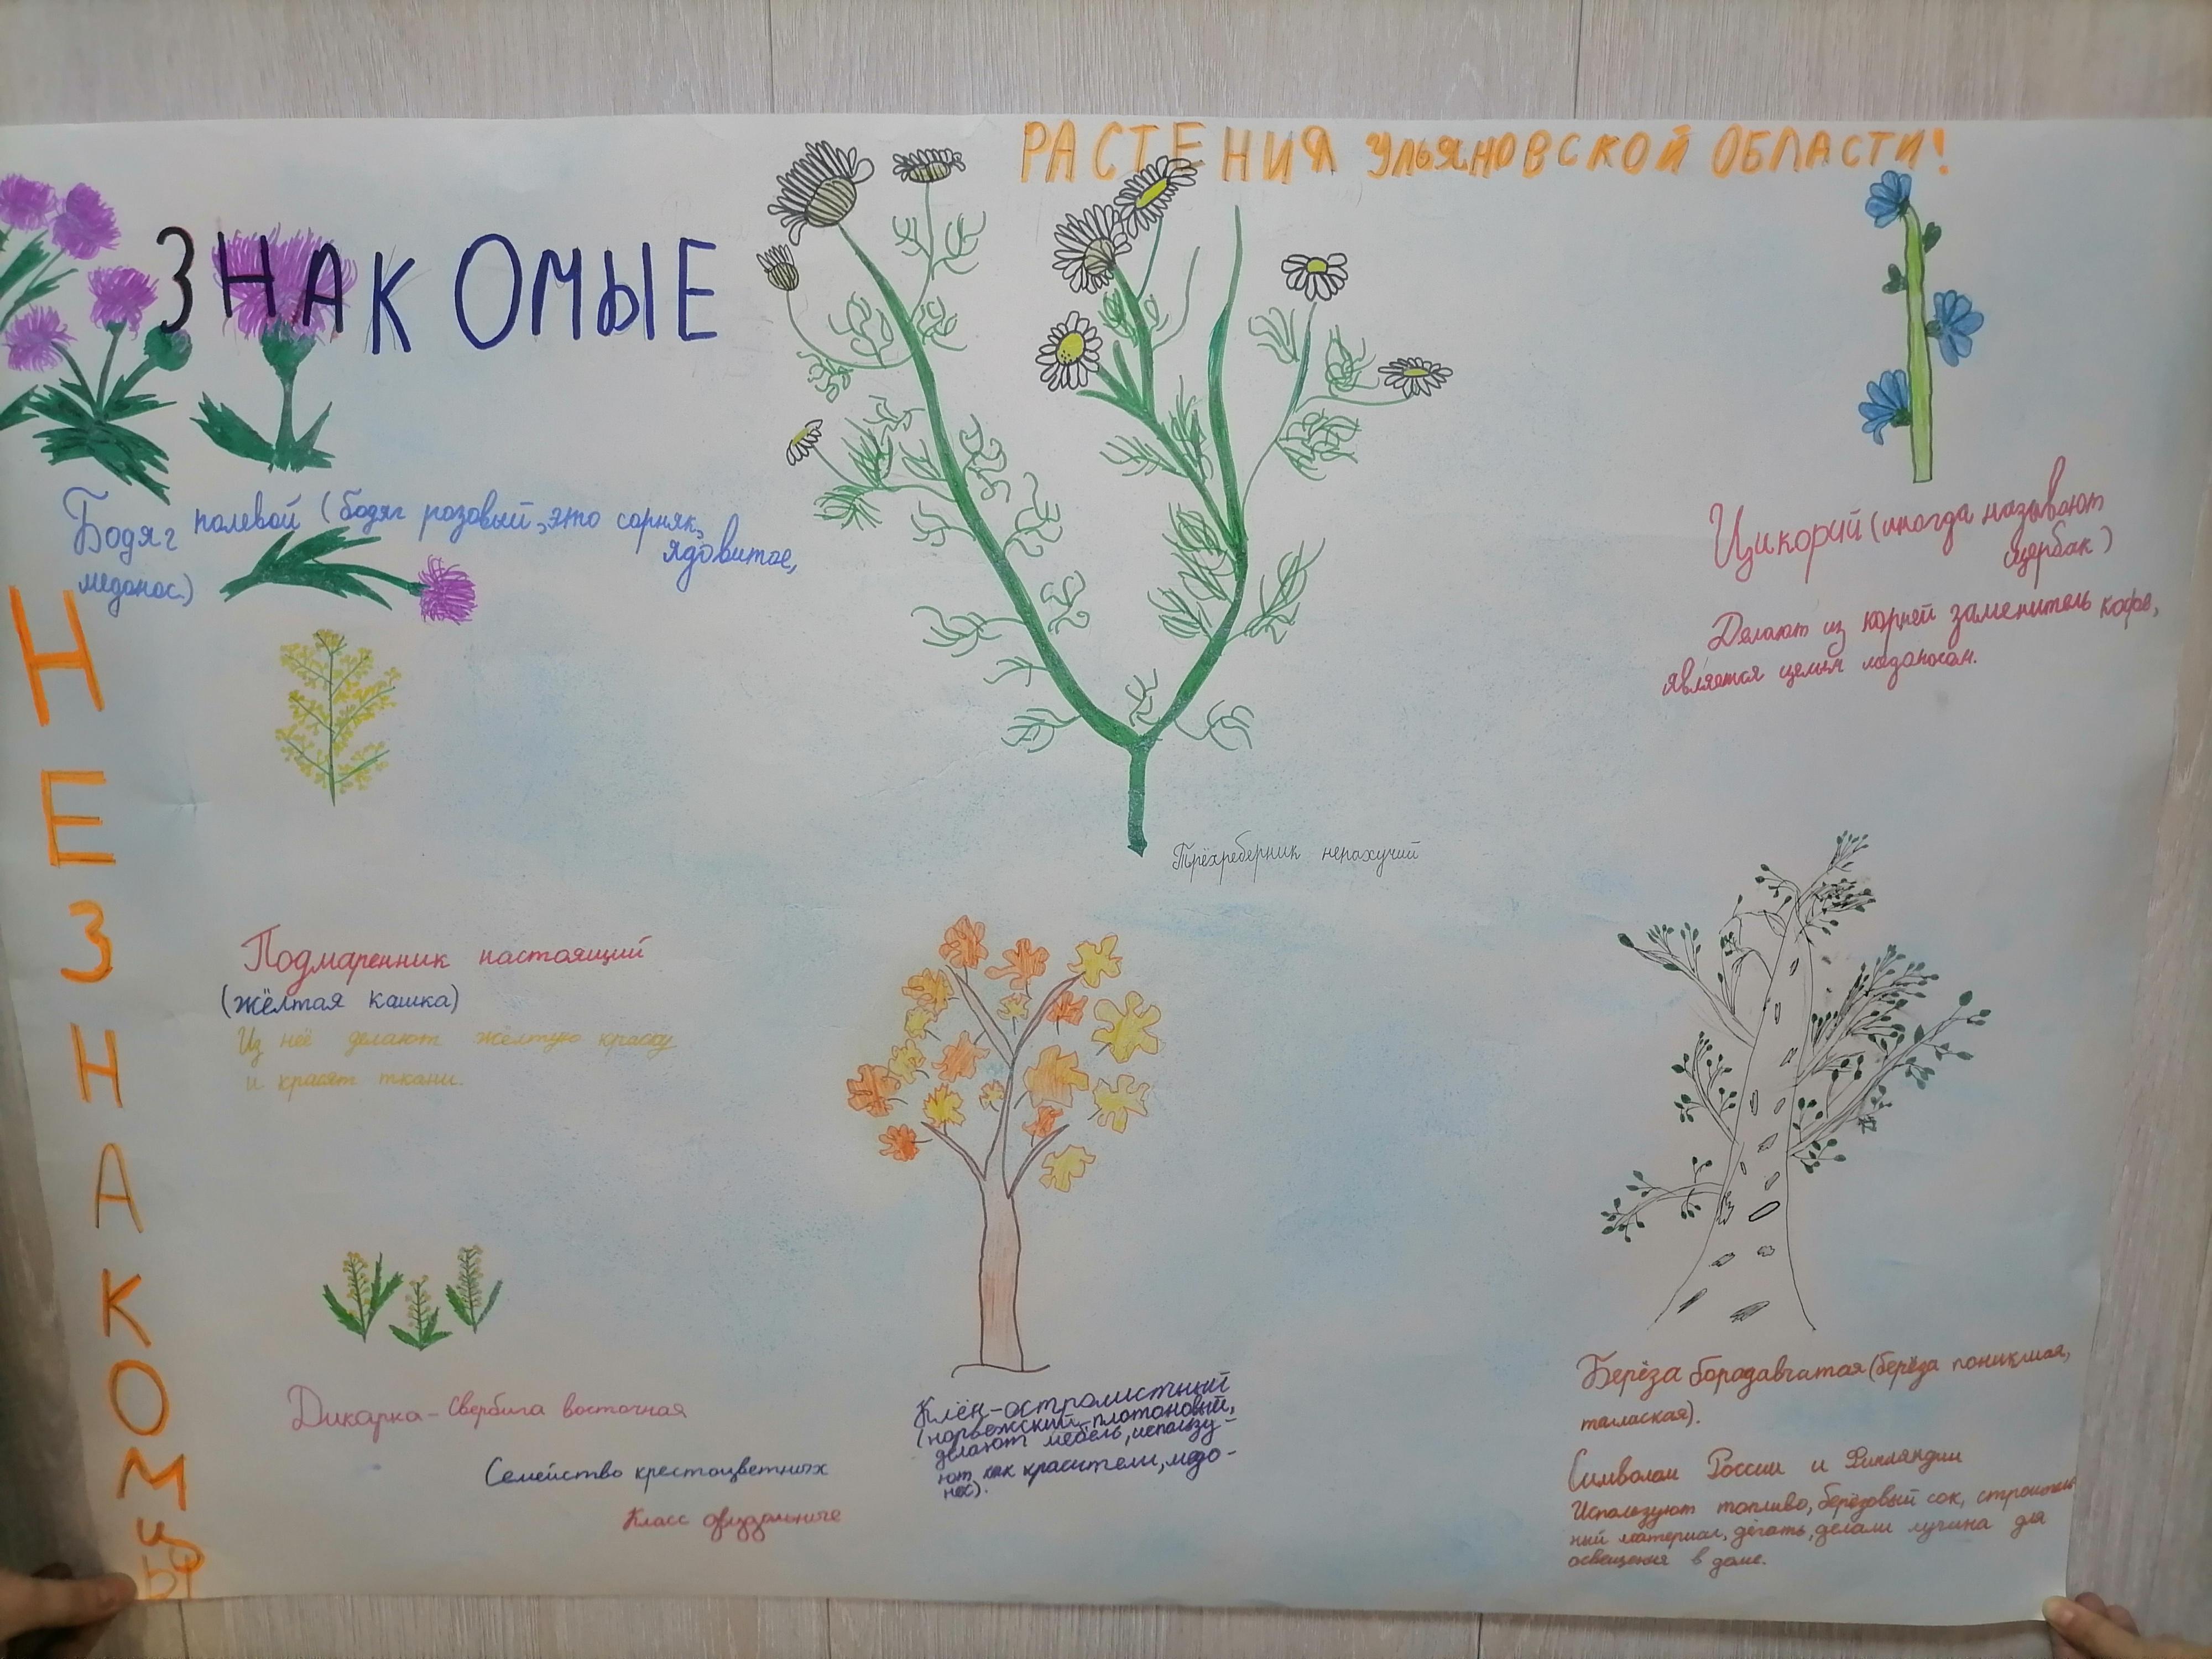 РАСТЕНИЯ УЛЬЯНОВСКОЙ ОБЛАСТИ!
ЗНАКОМЫЕ
НЕЗНАКОМЦЫ
Бодяг полевой (бодяг розовый, это сорняк,
ядовитое,
медонос.)
Цикорий (иногда называют
щербак)
Делают из корней заменитель кофе,
является целым медоносом.
Трёхреберник непахучий
Подмаренник настоящий
(жёлтая кашка)
Из неё делают жёлтую краску
и красят ткани.
Дикарка - Свербига восточная
Семейство крестоцветных
Класс двудольные
Клён-остролистный
(норвежский, платоновый,
делают мебель, использу-
ют как красители, медо-
нос).
Берёза бородавчатая (берёза поникшая,
талаская).
Символом России и Финляндии
Используют топливо, берёзовый сок, строитель
ный материал, дёготь, делали лучина для
освещения в доме.